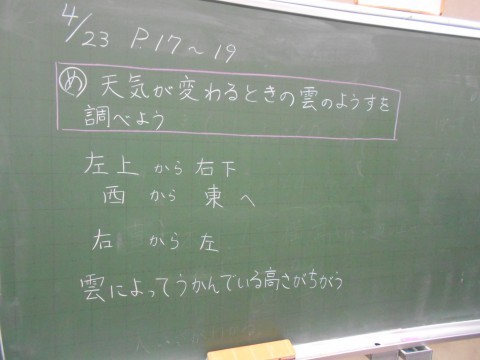 4/23 P.17〜19
め 天気が変わるときの雲のようすを
調べよう
左上 から 右下
西 から 東 へ
右 から 左
雲によってうかんでいる高さがちがう